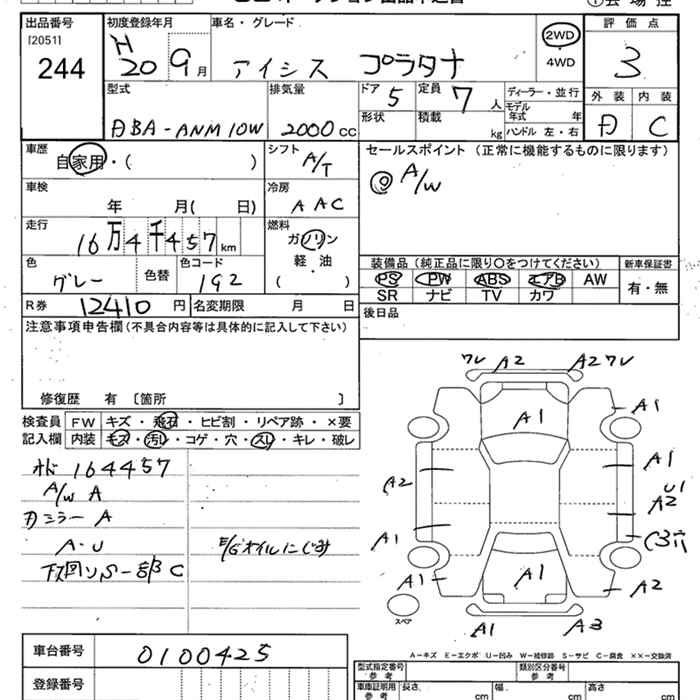 出品番号 初度登録年月 車名・グレード 評価点
[2051]
244 H20 9月 アイシス プラタナ 2WD 3
・4WD
型式 排気量 ドア 5 定員 7 人 ディーラー・並行 外装 内装
モデル年式 年
DBA-ANM10W 2000cc 形状 積載 kg ハンドル 左・右 C
車歴 自家用・( ) シフト A/T セールスポイント (正常に機能するものに限ります)
◎ A/W
車検 年 月( 日) 冷房 AAC
走行 16万4千457km 燃料 ガソリン
軽・油
( )
色 グレー 色替 色コード 1G2 装備品 (純正品に限り○をつけてください) 新車保証書
PS PW ABS エアB AW 有・無
SR ナビ TV カワ
R券 12410円 名変期限 月 日 後日品
注意事項申告欄(不具合内容等は具体的に記入して下さい)
修復歴 有 〔箇所 〕
検査員 FW キズ・飛石・ヒビ割・リペア跡・×要
記入欄 内装 モス・汚レ・コゲ・穴・スレ・キレ・破レ
ワレ A2 A2 ワレ
A1 A1
オド 164457 A1
A/W A A2 U1
A2
ミラー A
A・U E/Gオイルにじみ A1 C3穴
下回りS一部C A1 A1 A2
スペア
A1 A3
A-キズ E-エクボ U-凹み W-補修跡 S-サビ C-腐食 ××-交換済
車台番号 0100425
型式指定番号 類別区分番号
参考 参考
登録番号 車庫証明用 長さ、 幅、 高さ
参考 cm cm cm